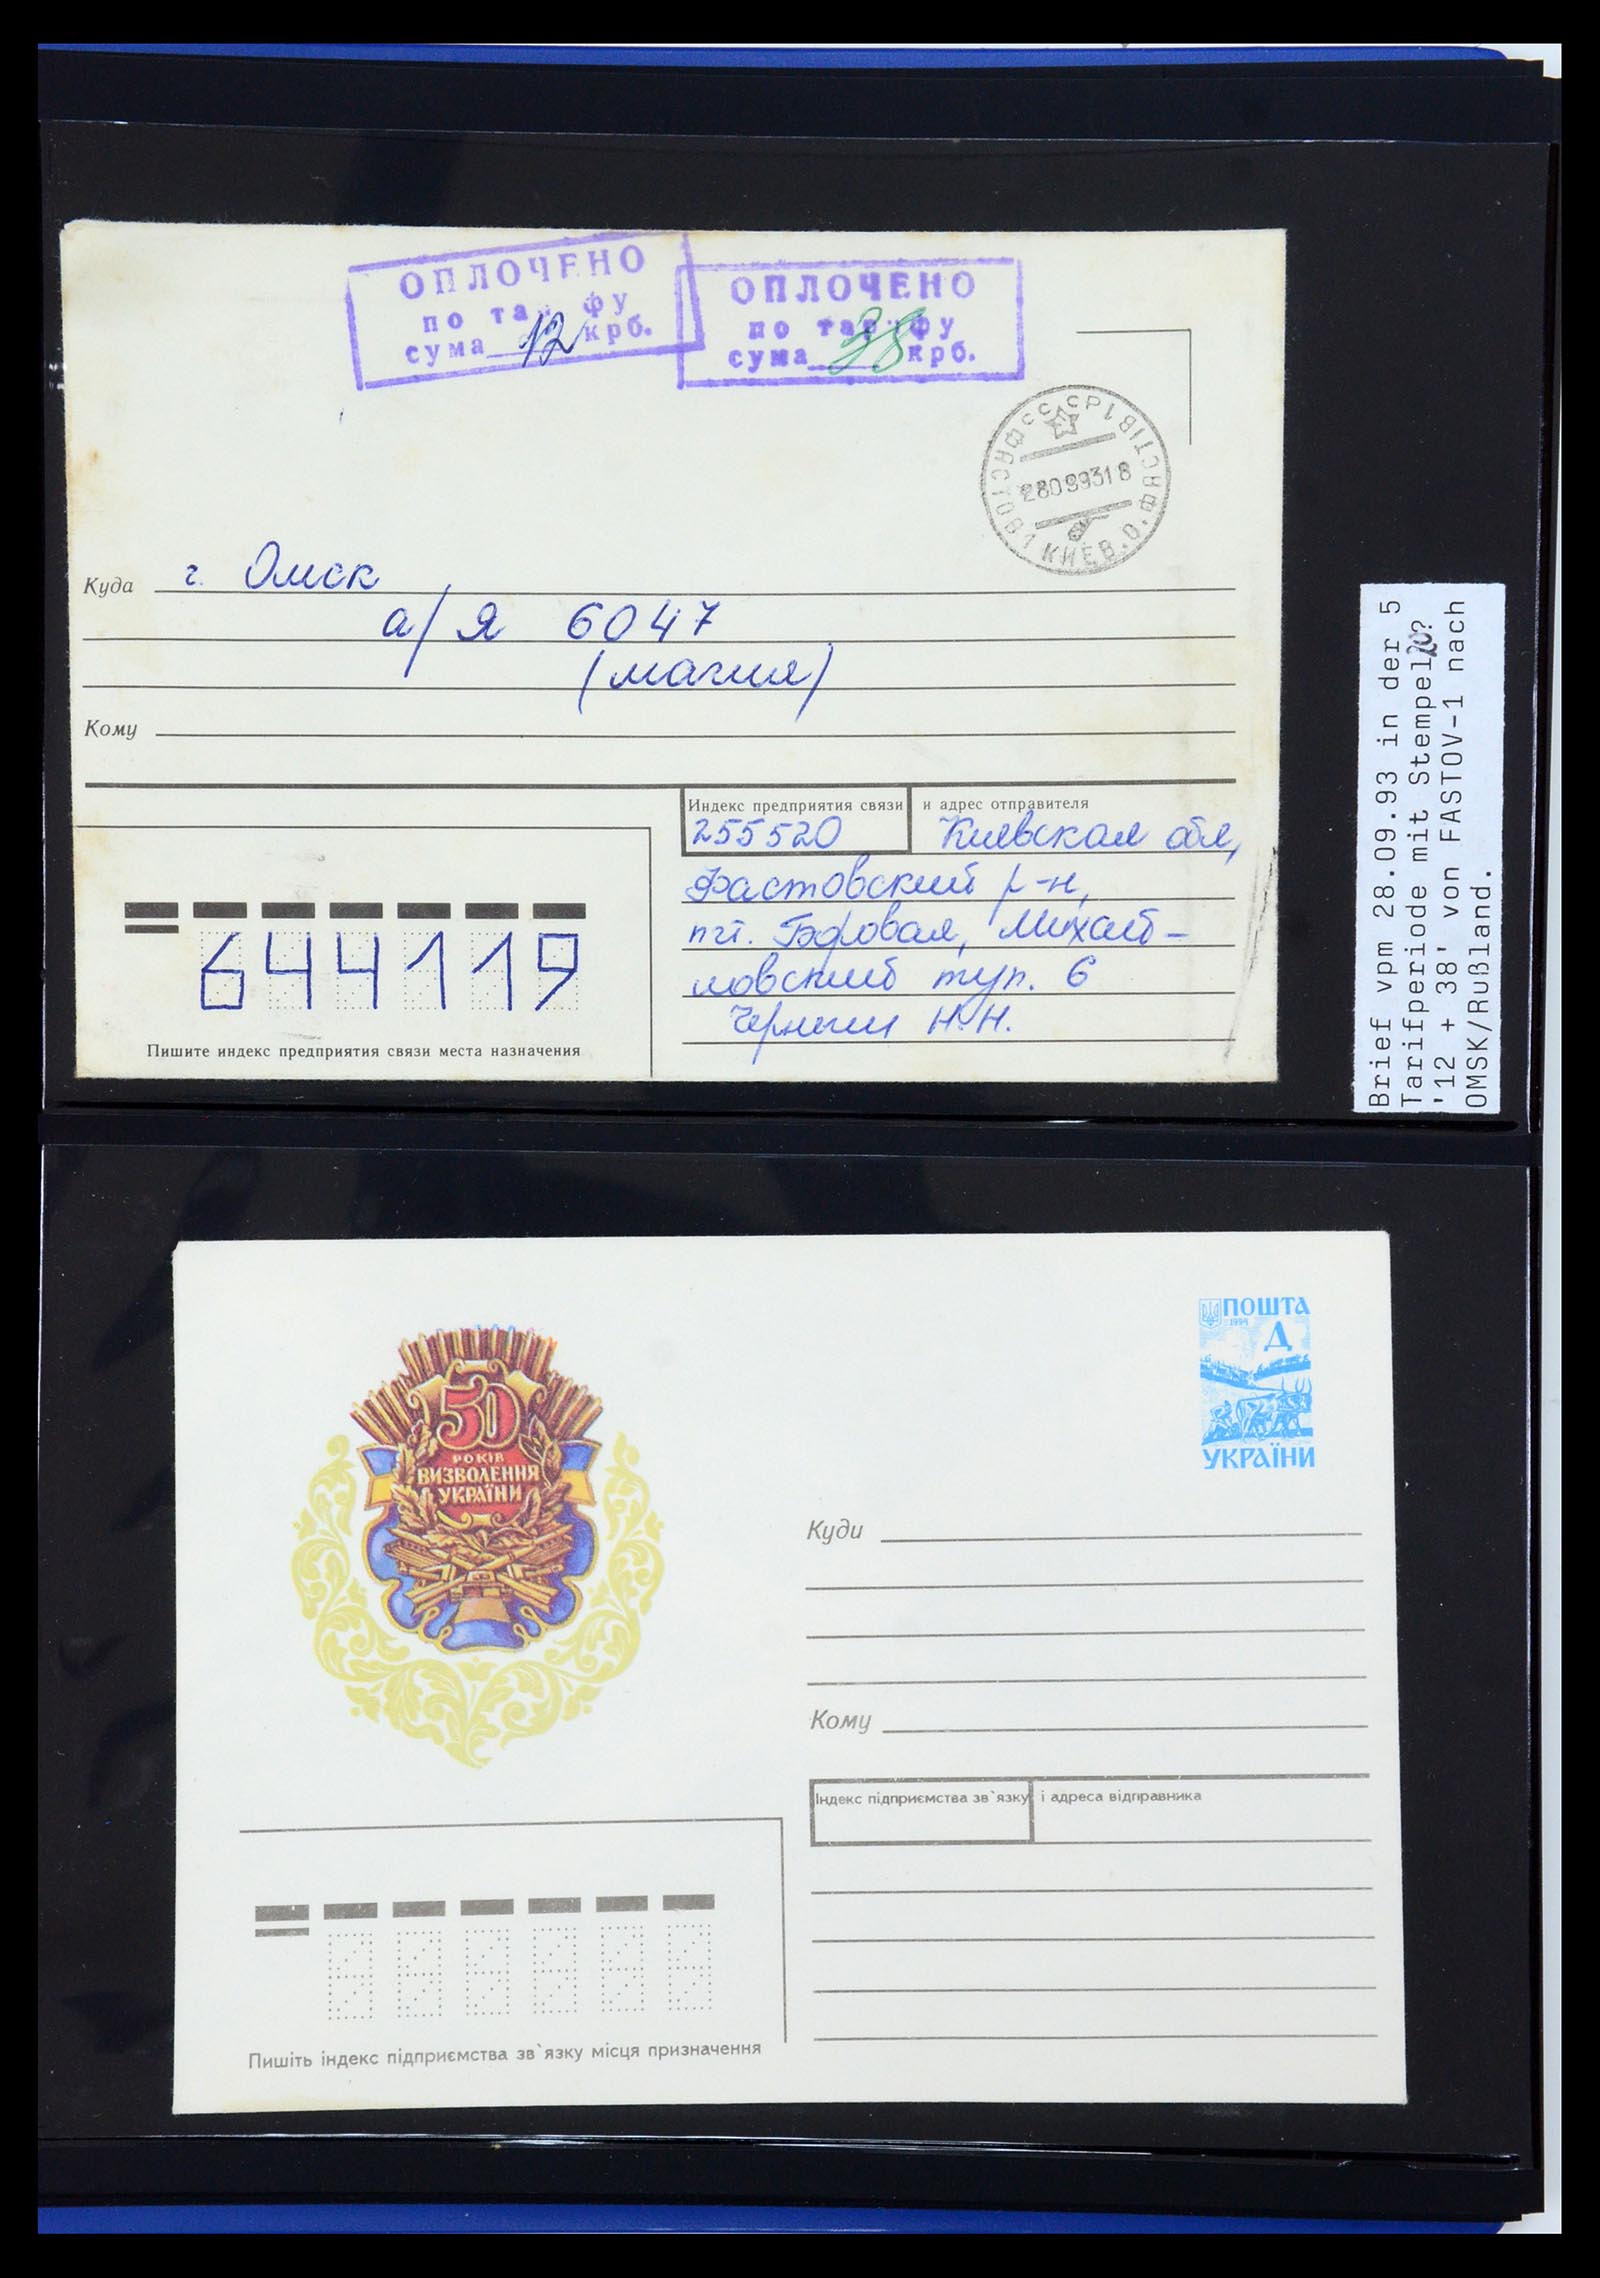 ОПЛОЧЕНО
по тарифу
сума 12 крб.
ОПЛОЧЕНО
по тарифу
сума 38 крб.
28099318
КИЕВ.О.
Куда г. Омск
а/я 6047
(магия)
Кому
Индекс предприятия связи и адрес отправителя
255520 Киевская обл,
Фастовский р-н,
пгт. Боровая, Михай-
ловский туп. 6
Н.Н.
644119
Пишите индекс предприятия связи места назначения
Brief vpm 28.09.93 in der 5
Tarifperiode mit Stempel 20?
'12 + 38' von FASTOV-1 nach
OMSK/Rußland.
50
РОКІВ
ВИЗВОЛЕННЯ
УКРАЇНИ
ПОШТА
1994
Д
УКРАЇНИ
Куди
Кому
Індекс підприємства зв`язку і адреса відправника
Пишіть індекс підприємства зв`язку місця призначення